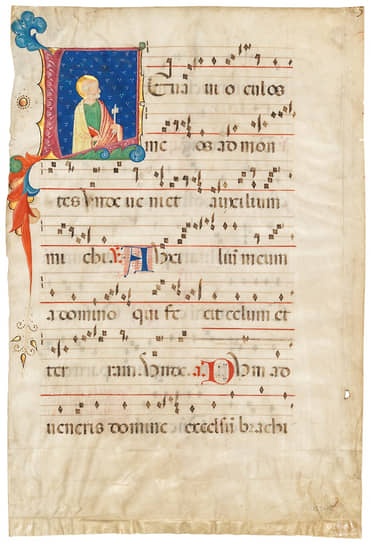 Leuaui oculos
me os ad mon
tes Unde ue niet auxilium
mi chi ℣ Auxi lium meum
a domino qui fe cit celum et
ter ram. Unde. a. Dum ad
ueneris domine